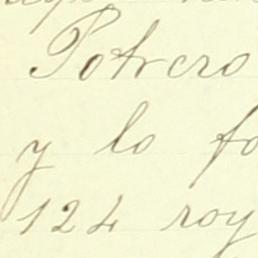 Potrero
y lo fo
124 roy